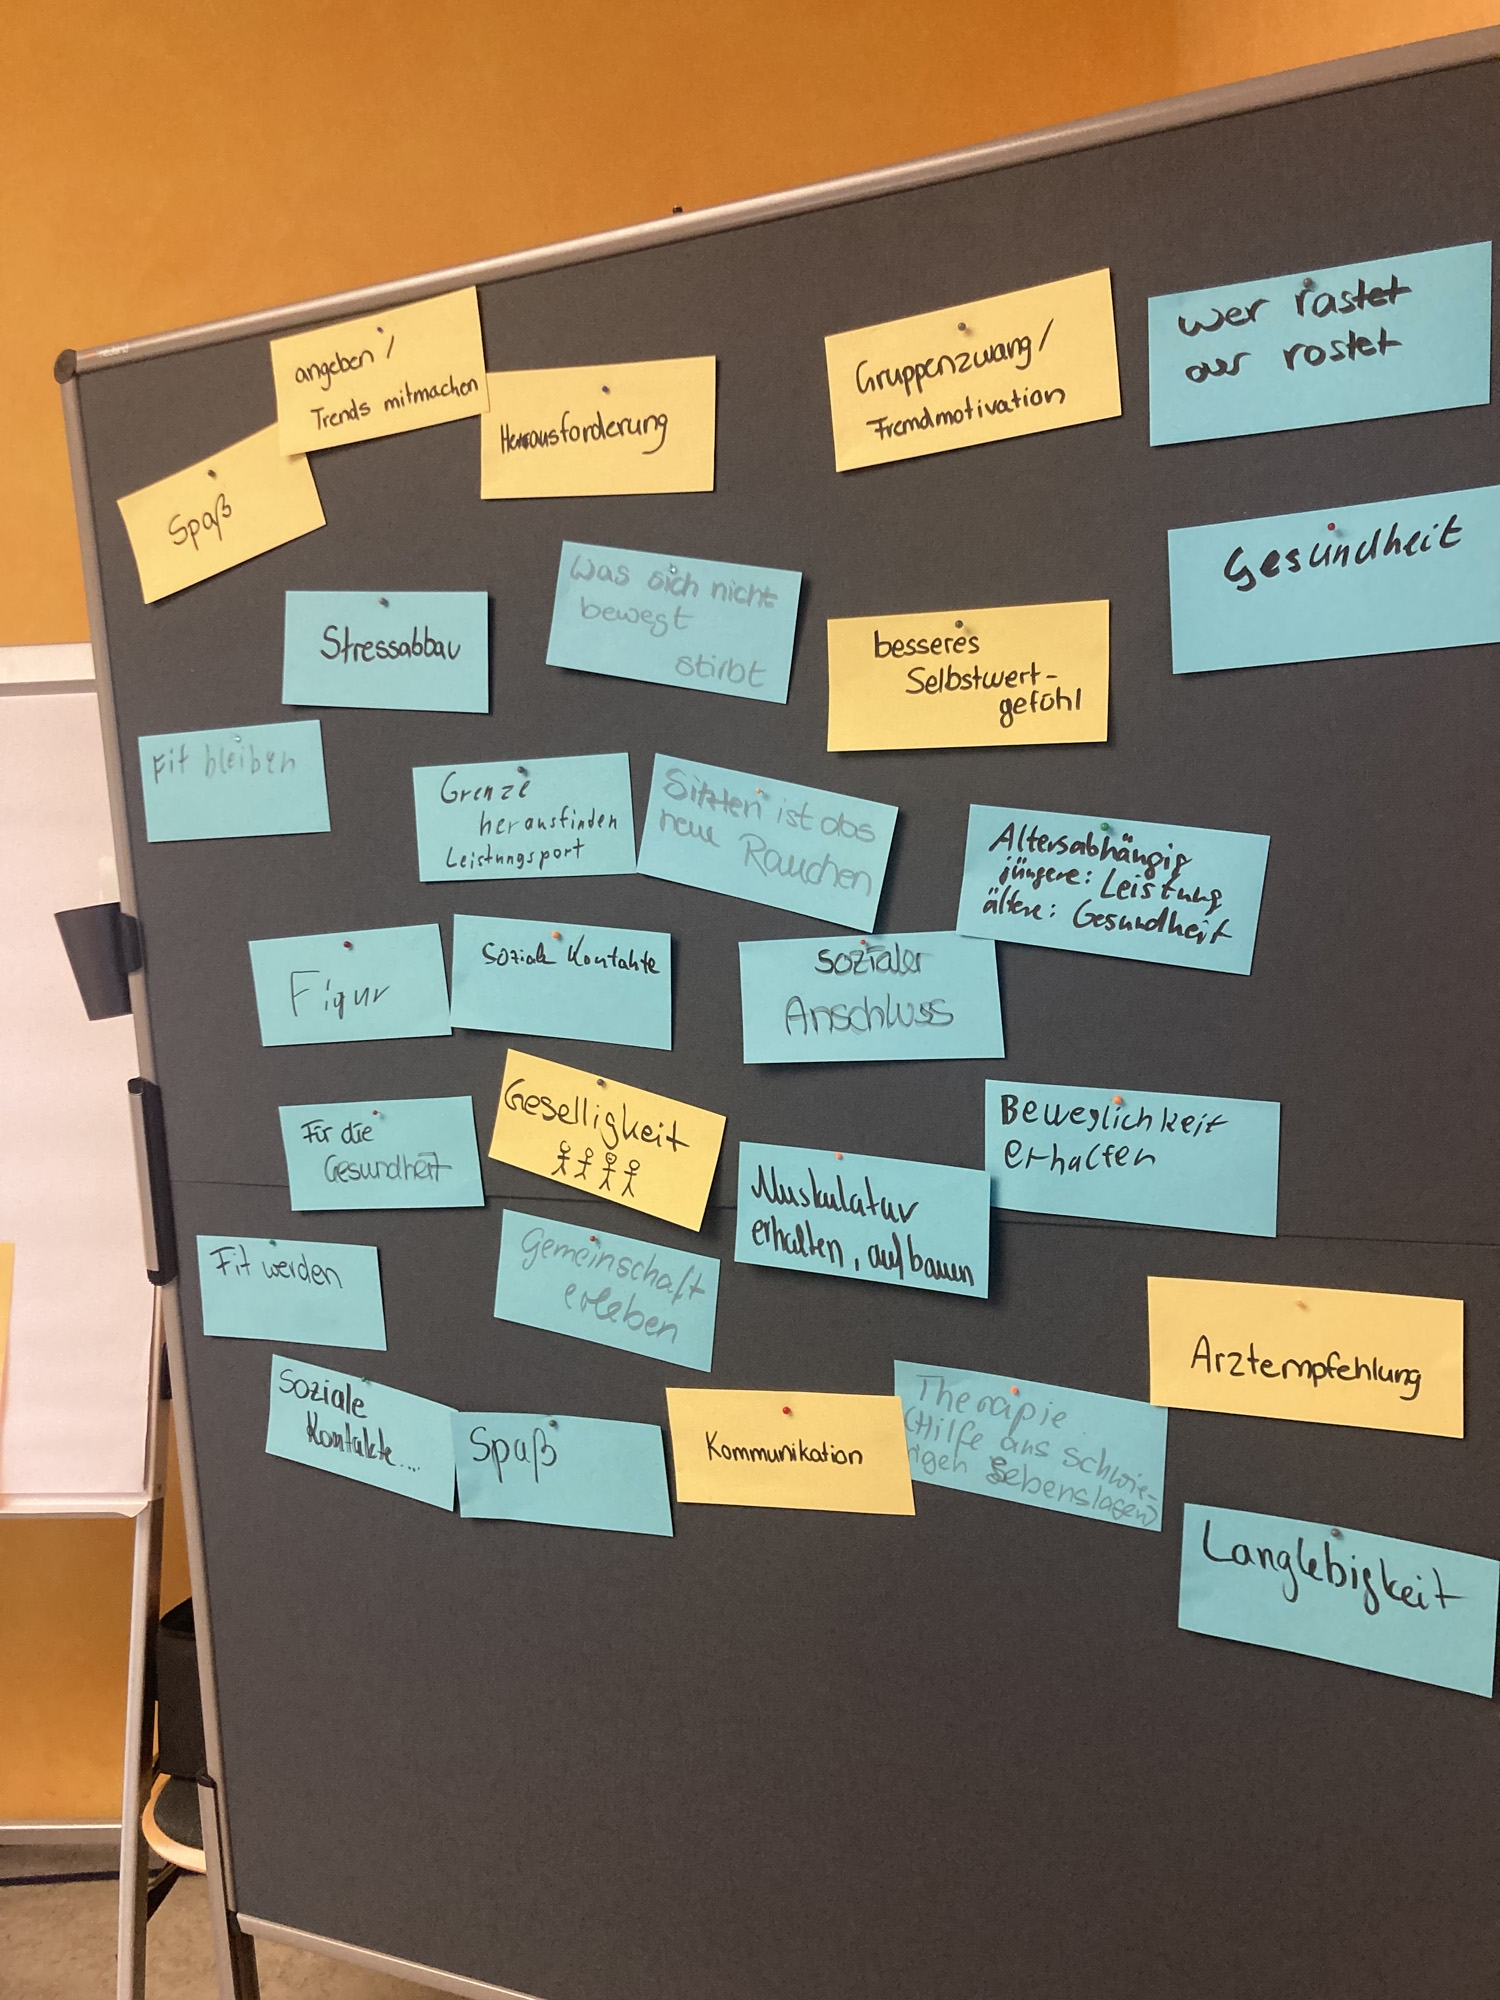 angeben /
Trends mitmachen
Herausforderung
Gruppenzwang /
Fremdmotivation
wer rastet
der rostet
Spaß
Gesundheit
Stressabbau
Was sich nicht
bewegt
stirbt
besseres
Selbstwert-
gefühl
Fit bleiben
Grenze
herausfinden
Leistungsport
Sitzen ist das
neue Rauchen
Altersabhängig
jüngere: Leistung
ältere: Gesundheit
Figur
soziale Kontakte
sozialer
Anschluss
Für die
Gesundheit
Geselligkeit
Beweglichkeit
erhalten
Muskulatur
erhalten, aufbauen
Fit werden
Gemeinschaft
erleben
Arztempfehlung
Soziale
Kontakte....
Spaß
Kommunikation
Therapie
(Hilfe aus schwie-
rigen Lebenslagen)
Langlebigkeit